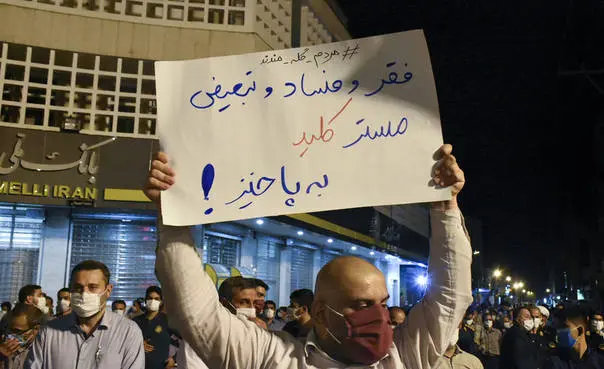 #مردم_گله_مندند
فقر و فساد و تبعیض
مستر کلید
به پا خیز !
بانک ملی
MELLI IRAN